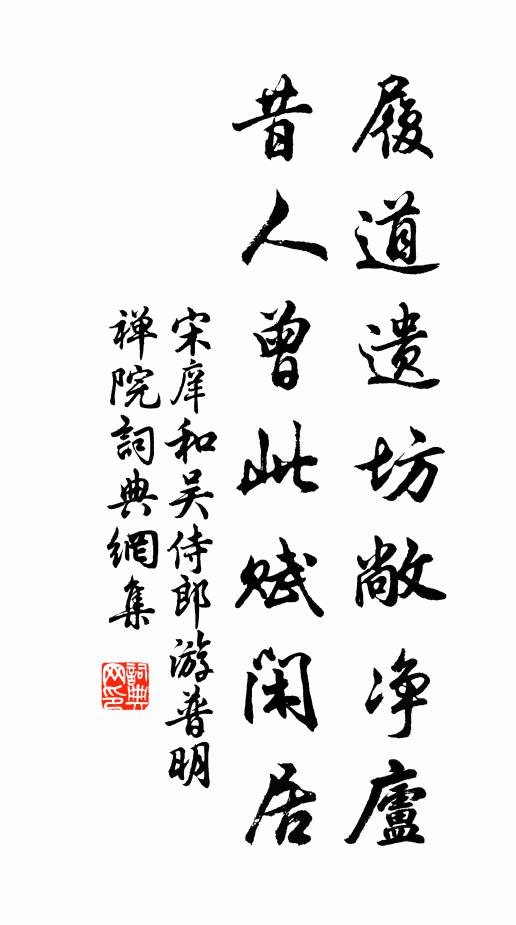 履道遗坊敞净廬
昔人曾此赋闲居
宋庠和吴侍郎游普明
禅院詞典網集
詞典网印